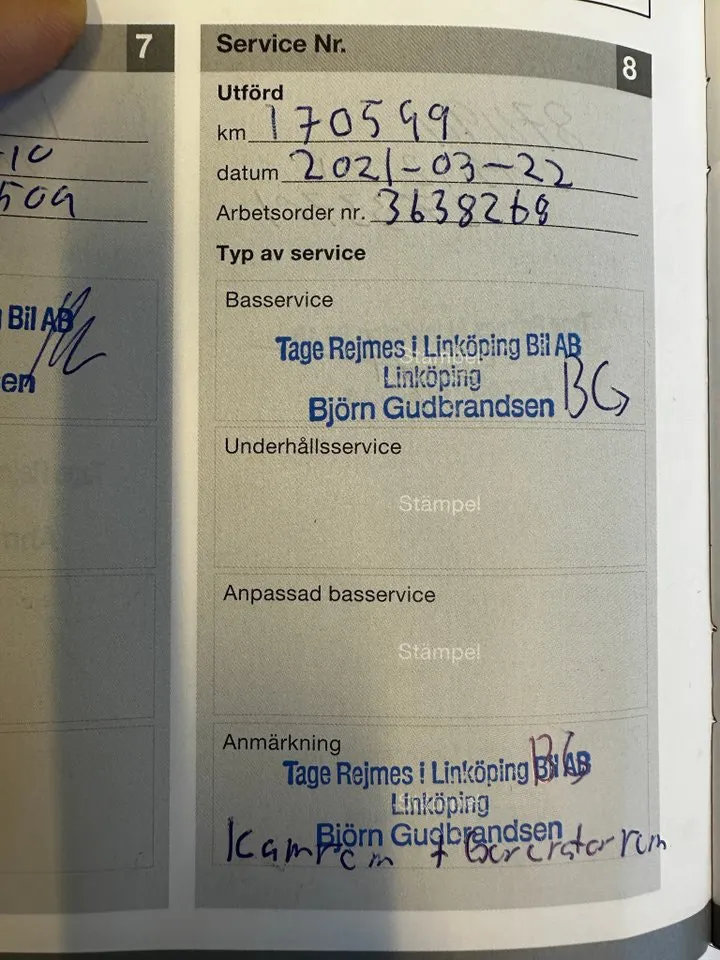 7
-10
509
Bil AB
en
Service Nr.
8
Utförd
km 170599
datum 2021-03-22
Arbetsorder nr. 3638268
Typ av service
Basservice
Stämpel
Tage Rejmes i Linköping Bil AB
Linköping
Björn Gudbrandsen BG
Underhållsservice
Stämpel
Anpassad basservice
Stämpel
Anmärkning
Tage Rejmes i Linköping Bil AB
BG
Linköping
Björn Gudbrandsen
Kamrem + Generatorrem